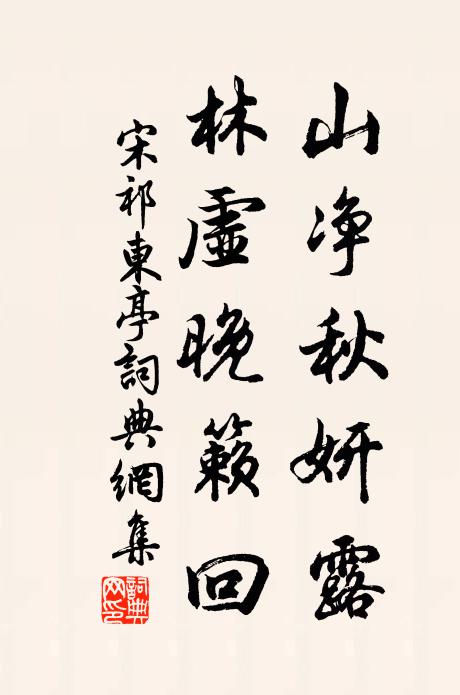 山净秋妍露
林虛晚籟回
宋祁東亭詞典網集
詞典网印